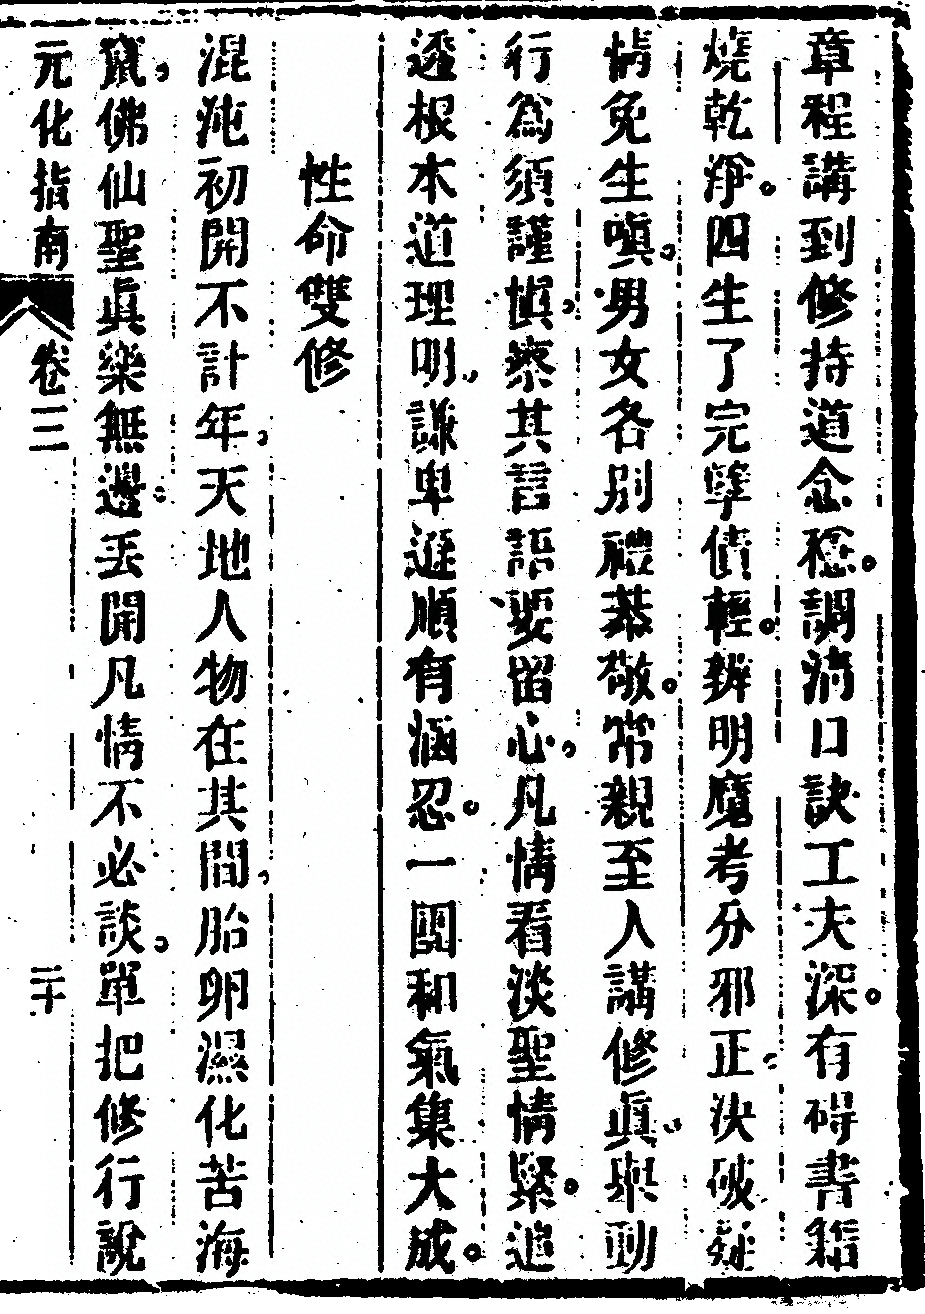 章程講到修持道念穩調清口訣工夫深有碍書籍
燒乾淨四生了完孽債輕辨明魔考分邪正決破疑
情免生嗔男女各別禮恭敬常親至人講修眞舉動
行爲須謹愼察其言語要留心凡情看淡聖情緊追
透根本道理明謙卑遜順有涵忍一團和氣集大成
性命雙修
混沌初開不計年天地人物在其間胎卵濕化苦海
竄佛仙聖眞樂無邊丟開凡情不必談單把修行說
元化指南 卷三 二十